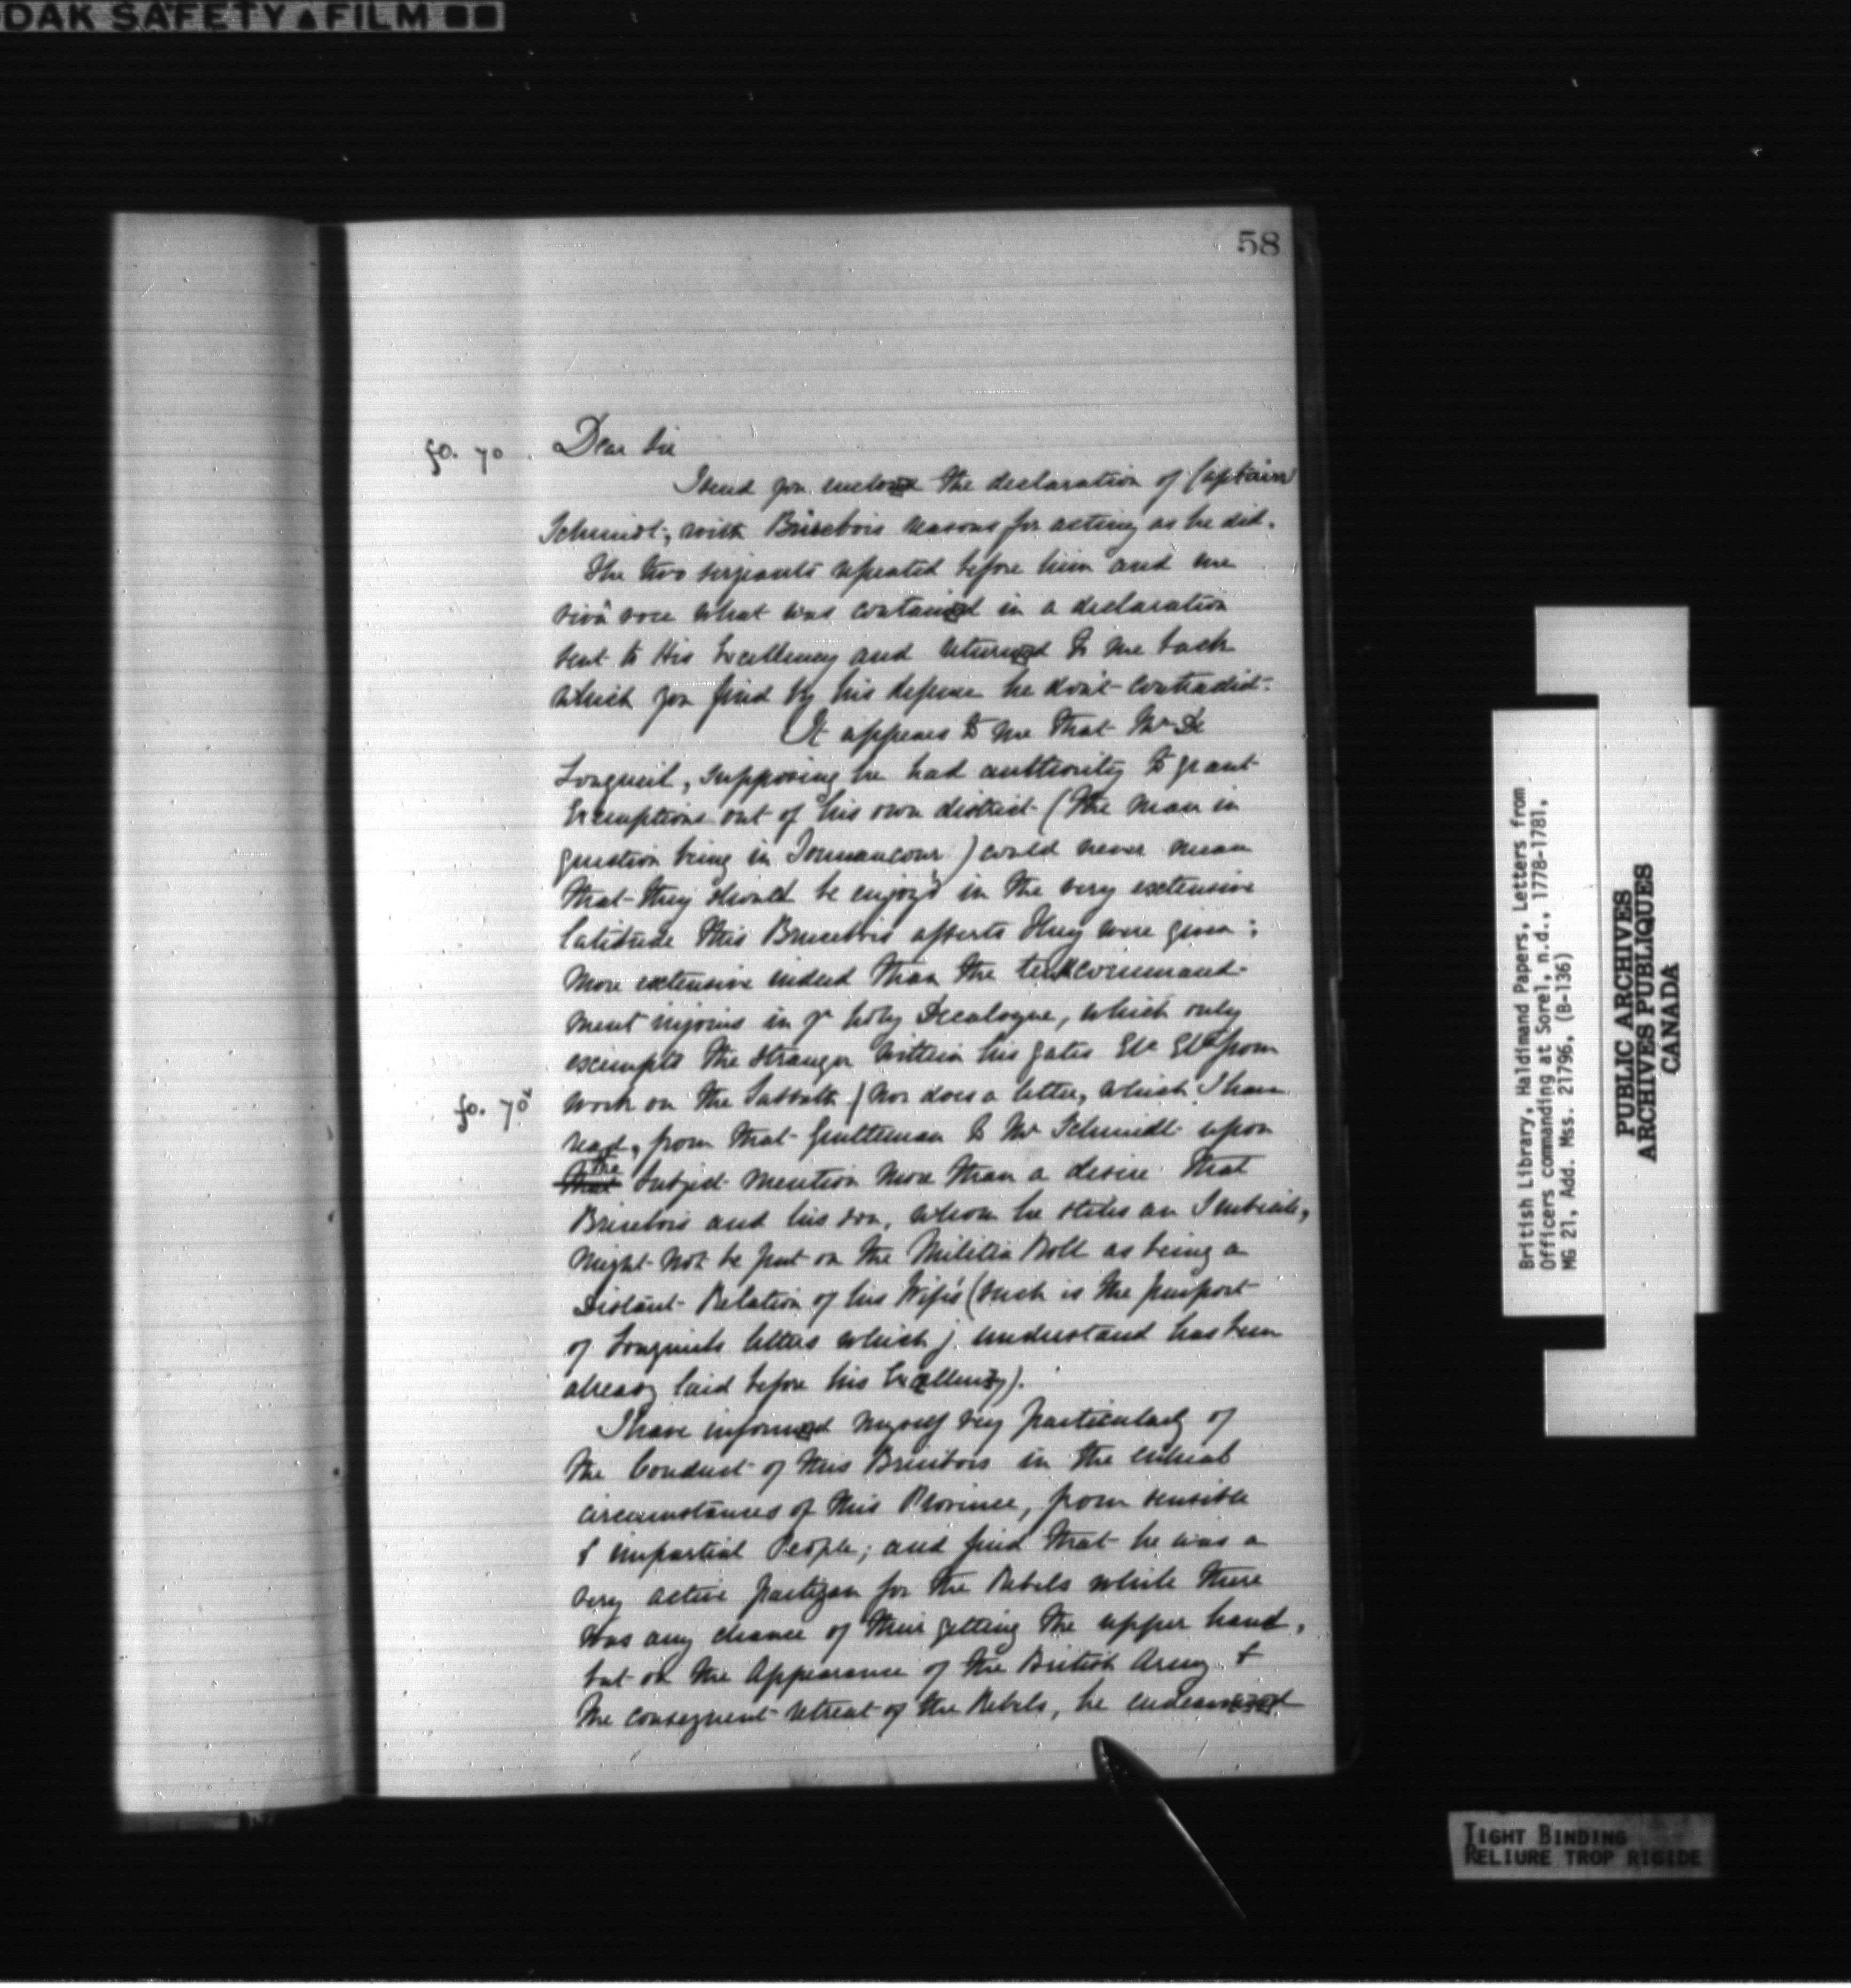 DAK SAFETY ▲ FILM
58
fo. 70.
Dear Sir
I send you enclosed the declaration of Captain
Schmidt, with Brisebois reasons for acting as he did.
The two serjeants repeated before him and me
vivâ voce what was contained in a declaration
sent to His Excellency and returned to me back
which you find by his defense he don't contradict.
It appears to me that Mr De
Longueil, supposing he had authority to grant
Exemptions out of his own district (the man in
question being in Tonnancour) could never mean
that they should be enjoy'd in the very extensive
latitude this Brisebois asserts they were given;
more extensive indeed than the tenth command-
ment injoins in ye holy Decalogue, which only
exempts the stranger within his gates &c &c from
fo. 70b
work on the Sabbath / nor does a letter, which I have
read, from that Gentleman to Mr Schmidt upon
the
that Subject mention more than a desire that
Brisebois and his son, whom he stiles an Imbicile,
might not be put on the Militia Roll as being a
Distant Relation of his Wife's (such is the purport
of Longueils letters which j. understand has been
already laid before his Excellency).
I have informed myself very particularly of
the Conduct of this Brisebois in the critical
circumstances of this Province, from sensible
& impartial People; and find that he was a
very active partizan for the Rebels while there
was any chance of their getting the upper hand,
but on the Appearance of the British Army &
the consequent retreat of the Rebels, he endeavored
British Library, Haldimand Papers, Letters from
Officers commanding at Sorel, n.d., 1778-1781,
MG 21, Add. Mss. 21796, (B-136)
PUBLIC ARCHIVES
ARCHIVES PUBLIQUES
CANADA
TIGHT BINDING
RELIURE TROP RIGIDE